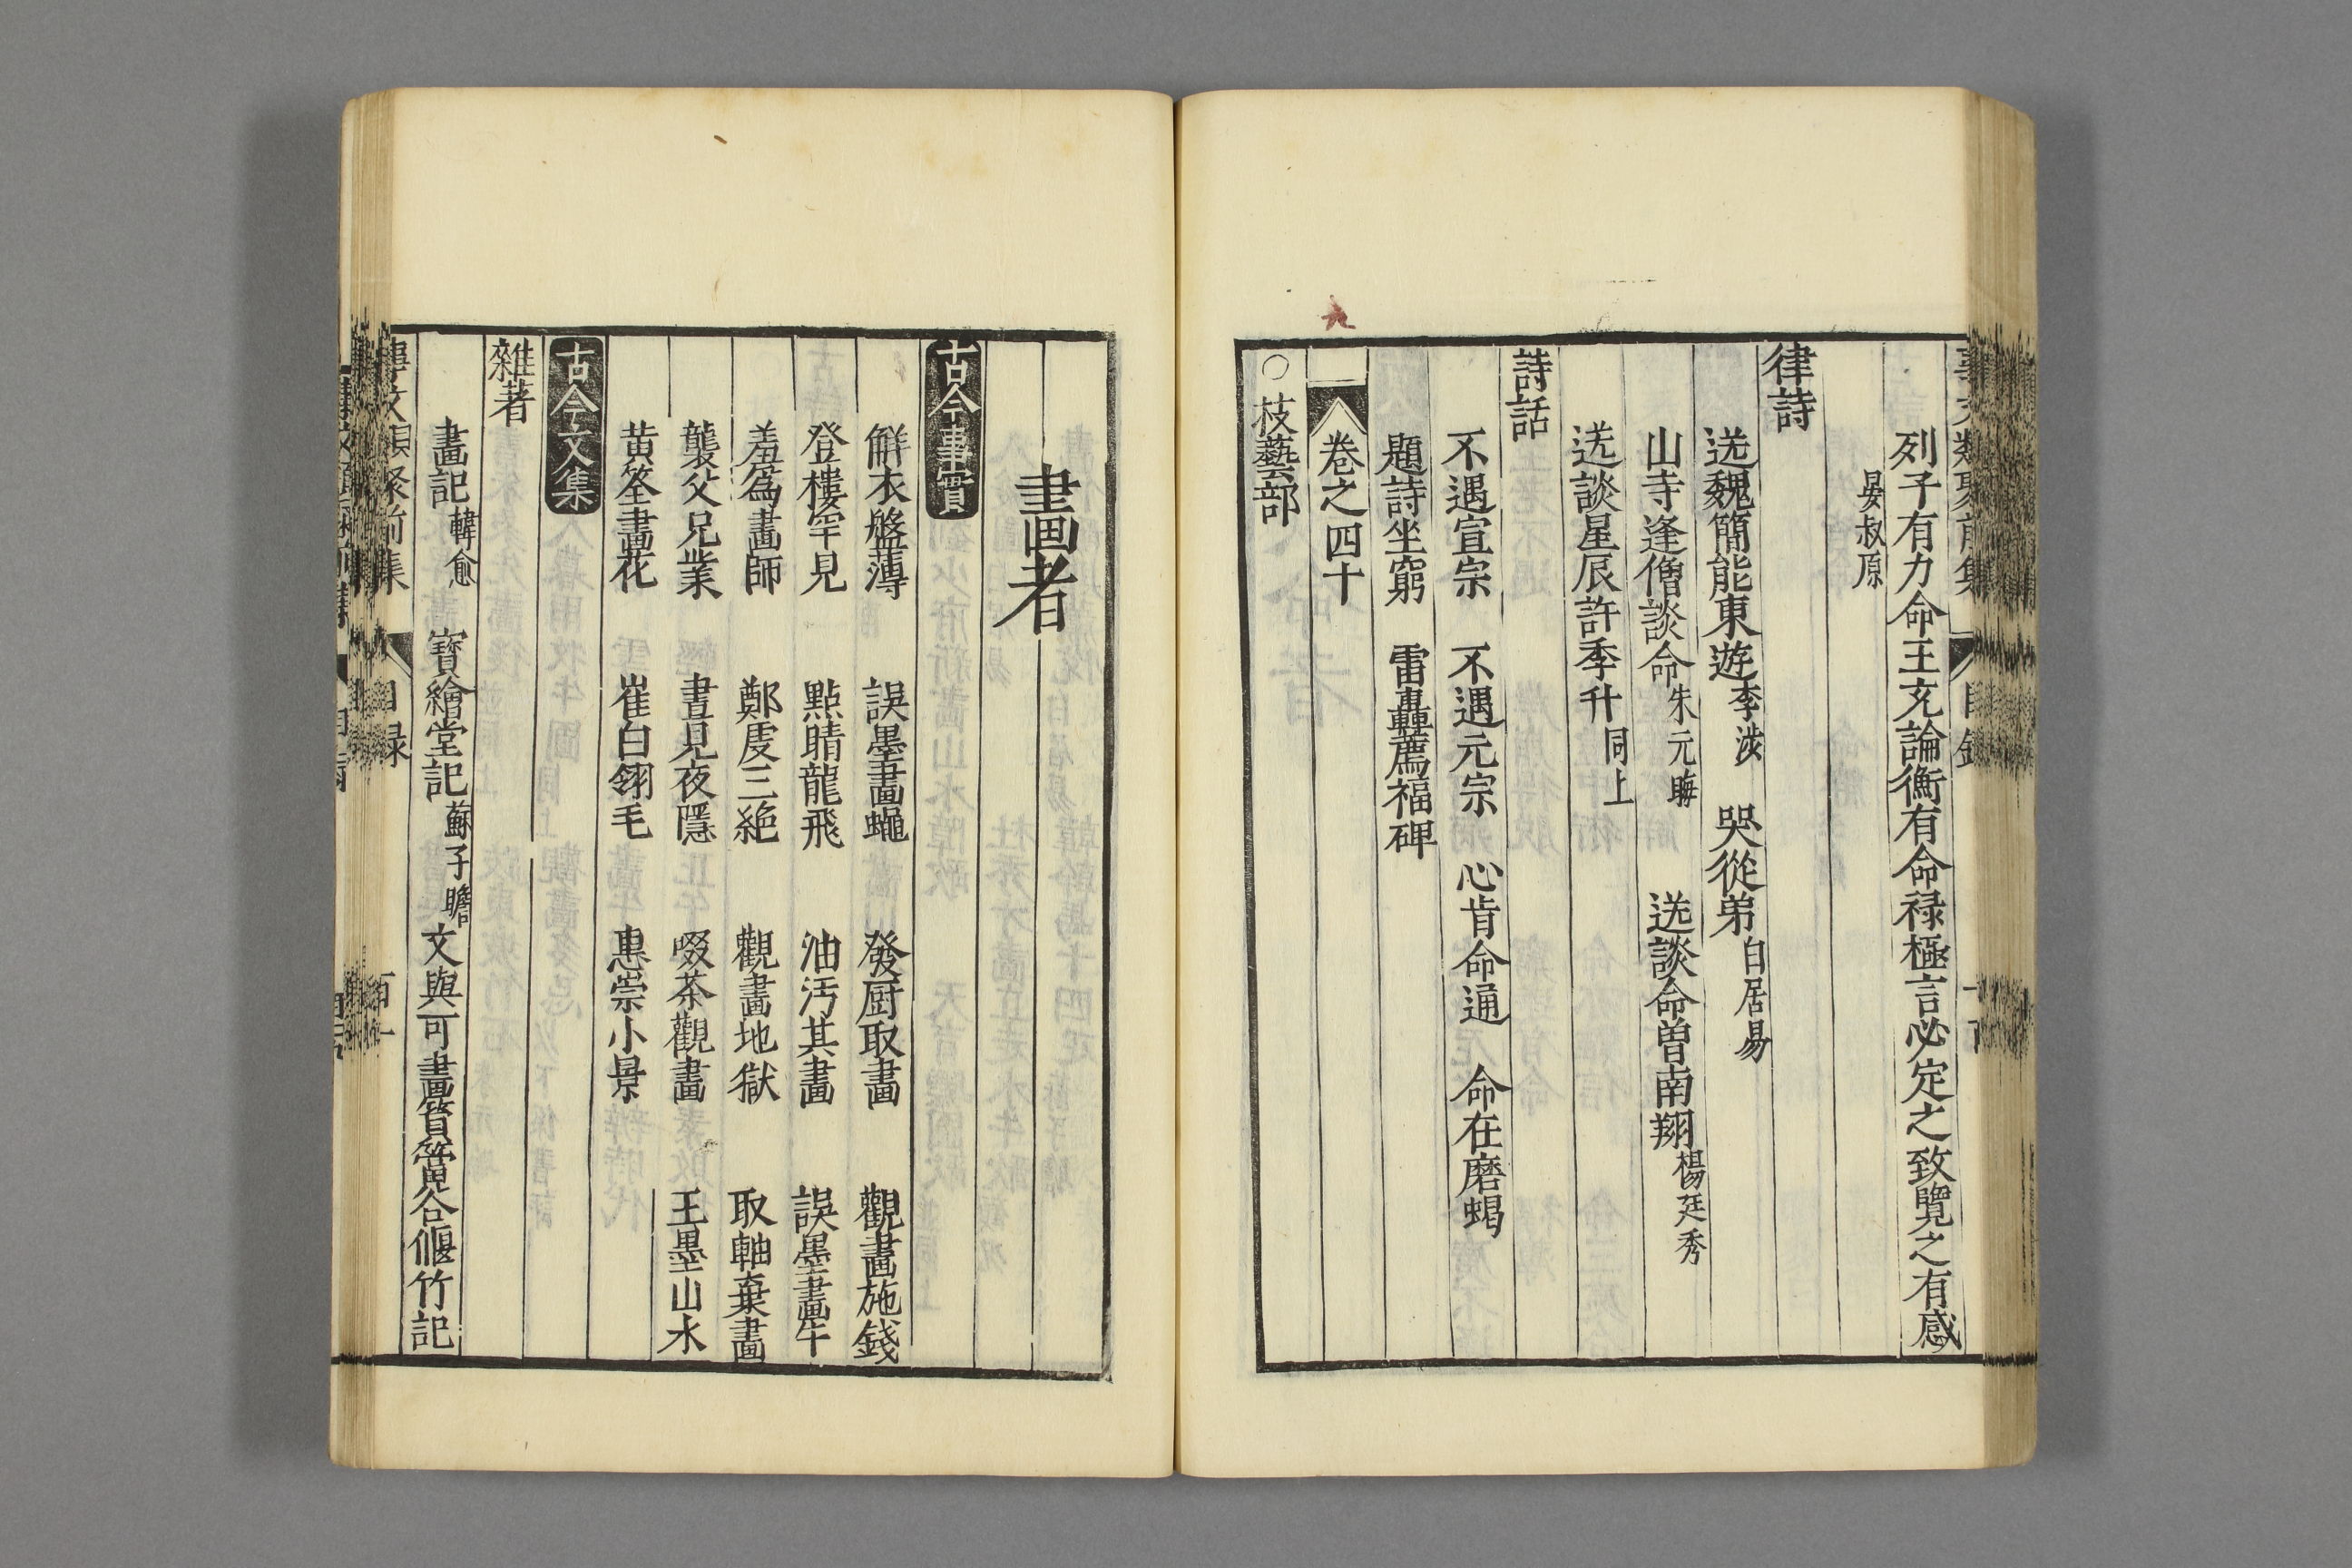 列子有力命王充論衡有命禄極言必定之致覽之有感
晏叔原
律詩
送魏簡能東遊李涉 哭從弟白居易
山寺逢僧談命朱元晦 送談命曽南翔楊廷秀
送談星辰許季升同上
詩話
不遇宣宗 不遇元宗 心肯命通 命在磨蝎
題詩坐窮 雷轟薦福碑
卷之四十
○枝藝部
畫者
古今事實
解衣盤薄 誤墨畫蠅 發厨取畫 觀畫施錢
登樓罕見 點睛龍飛 油汚其畫 誤墨畫牛
羞爲畫師 鄭虔三絶 觀畫地獄 取軸棄畫
襲父兄業 晝見夜隱 啜茶觀畫 王墨山水
黄筌畫花 崔白翎毛 惠崇小景
古今文集
雜著
畫記韓愈 寶繪堂記蘇子瞻 文與可畫篔簹谷偃竹記